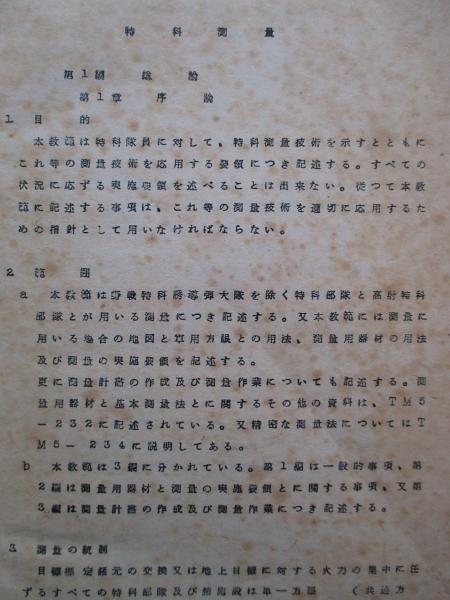 特科測量
第1編 総論
第1章 序論
1 目的
本教範は特科隊員に対して、特科測量技術を示すとともに
これ等の測量技術を応用する要領につき記述する。すべての
状況に応ずる実施要領を述べることは出来ない。従つて本教
範に記述する事項は、これ等の測量技術を適切に応用するた
めの指針として用いなければならない。
2 範囲
a 本教範は野戦特科誘導弾大隊を除く特科部隊と高射特科
部隊とが用いる測量につき記述する。又本教範には測量に
用いる場合の地図と軍用方眼との用法、測量用器材の用法
及び測量の実施要領を記述する。
更に測量計画の作成及び測量作業についても記述する。測
量用器材と基本測量法とに関するその他の資料は、TM5
-232に記述されている。又精密な測量法についてはT
M5-234に説明してある。
b 本教範は3編に分かれている。第1編は一般的事項、第
2編は測量用器材と測量の実施要領とに関する事項、又第
3編は測量計画の作成及び測量作業につき記述する。
3 測量の統制
目標標定諸元の交換又は地上目標に対する火力の集中に任
ずるすべての特科部隊及び諸施設は単一方眼(共通方